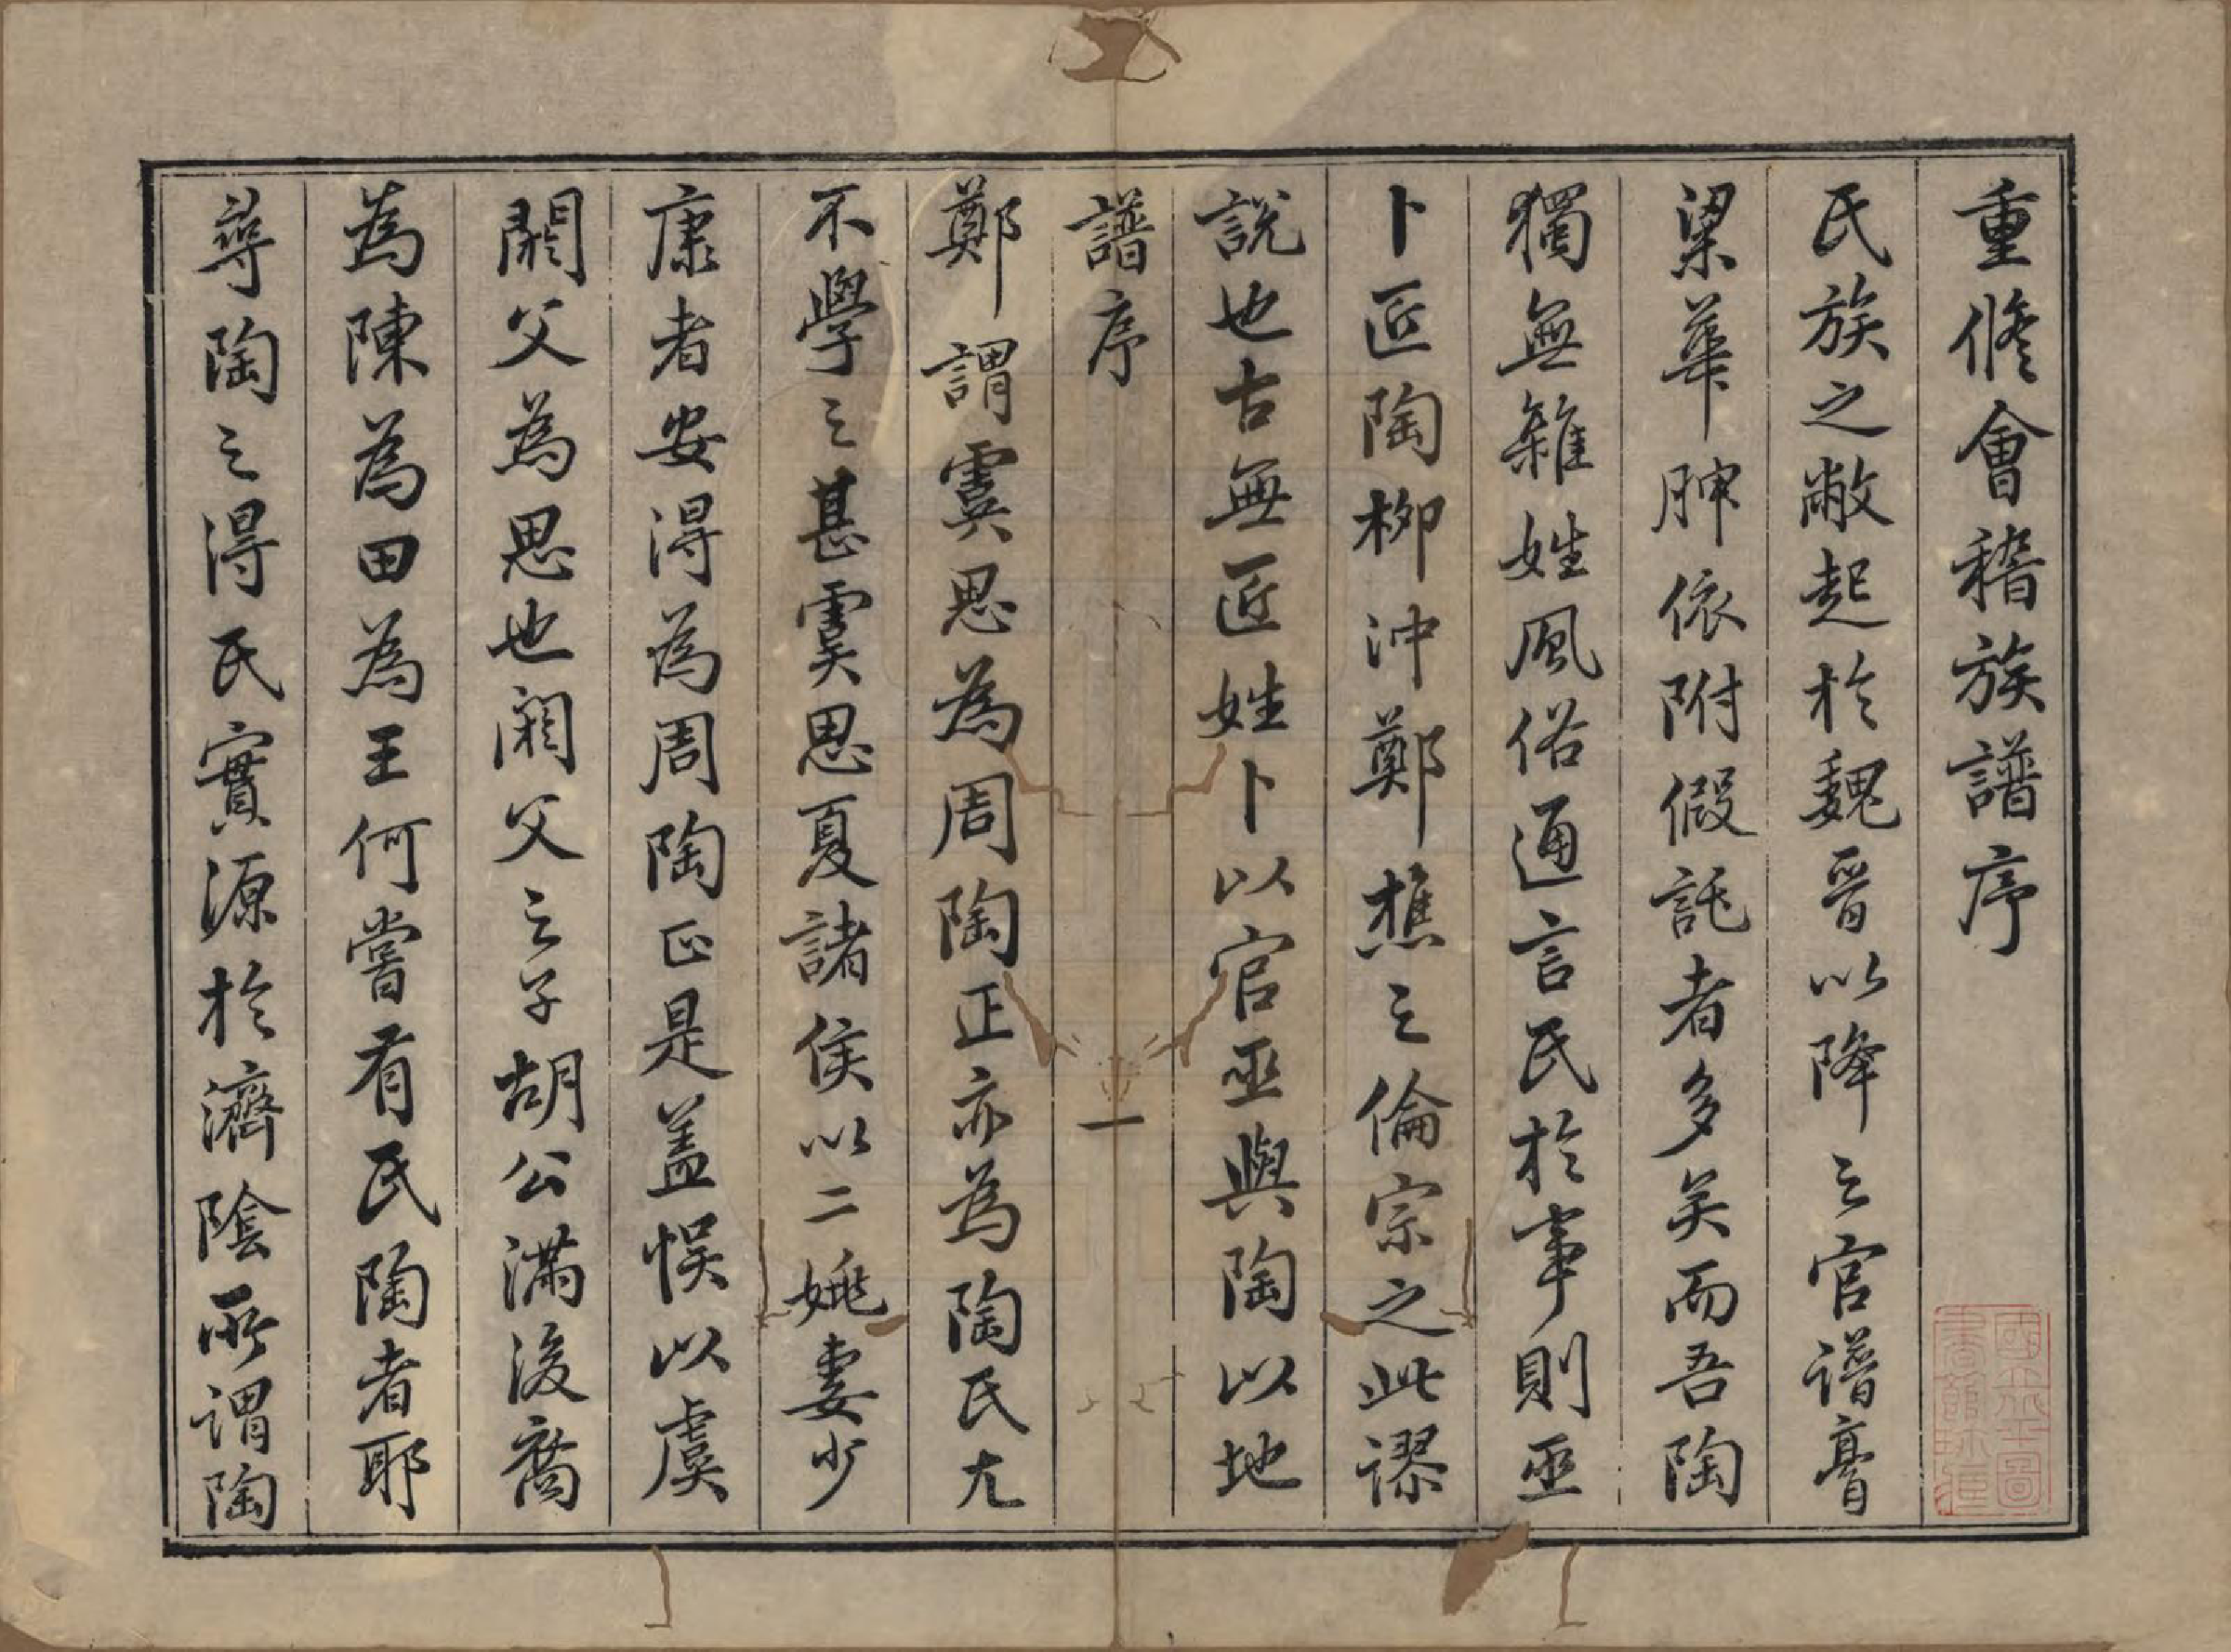 重修會稽族譜序
氏族之敝起於魏晉以降之官譜膏
梁華胛依附假託者多矣而吾陶
獨無雜姓風俗通言氏於事則巫
卜匠陶柳沖鄭樵之倫宗之此謬
說也古無匠姓卜以官巫與陶以地
譜序
一
鄭謂虞思為周陶正亦為陶氏尤
不學之甚虞思夏諸侯以二姚妻少
康者安得為周陶正是蓋悞以虞
閼父為思也閼父之子胡公滿後裔
為陳為田為王何嘗有氏陶者耶
尋陶之得氏實源於濟陰所謂陶